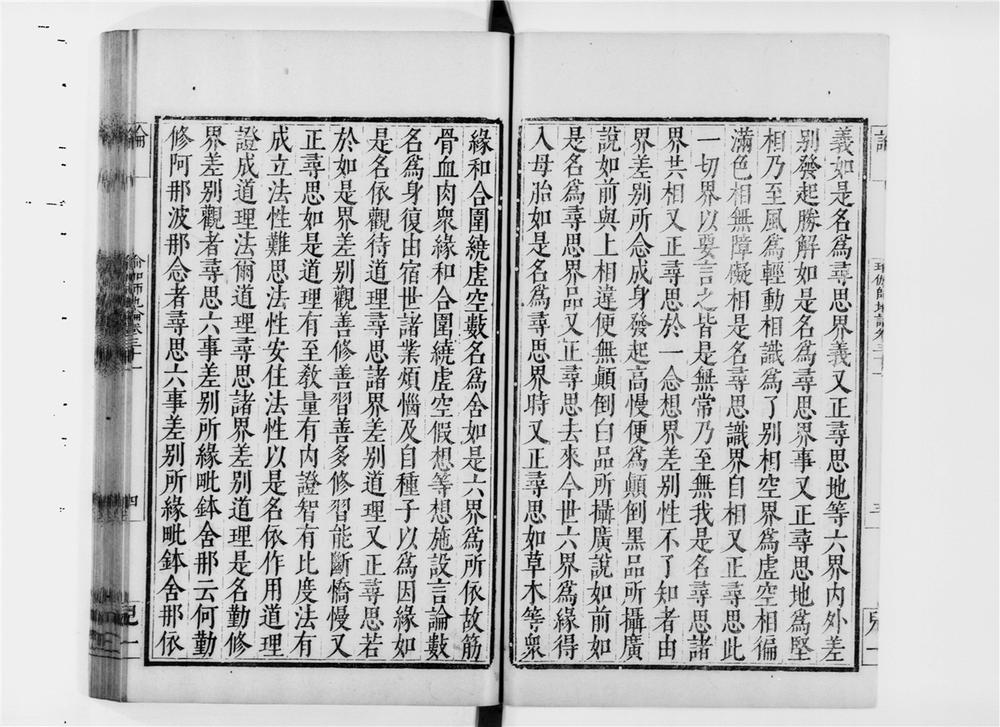 義如是名爲尋思界義又正尋思地等六界內外差
別發起勝解如是名爲尋思界事又正尋思地爲堅
相乃至風爲輕動相識爲了別相空界爲虛空相徧
滿色相無障礙相是名尋思識界自相又正尋思此
一切界以要言之皆是無常乃至無我是名尋思諸
界共相又正尋思於一合想界差別性不了知者由
界差別所合成身發起高慢便爲顛倒黑品所攝廣
說如前與上相違便無顛倒白品所攝廣說如前如
是名爲尋思界品又正尋思去來今世六界爲緣得
入母胎如是名爲尋思界時又正尋思如草木等衆
緣和合圍繞虛空數名爲舍如是六界爲所依故筋
骨血肉衆緣和合圍繞虛空假想等想施設言論數
名爲身復由宿世諸業煩惱及自種子以爲因緣如
是名依觀待道理尋思諸界差別道理又正尋思若
於如是界差別觀善修善習善多修習能斷憍慢又
正尋思如是道理有至敎量有內證智有比度法有
成立法性難思法性安住法性以是名依作用道理
證成道理法爾道理尋思諸界差別道理是名勤修
界差別觀者尋思六事差別所緣毗鉢舍那云何勤
修阿那波那念者尋思六事差別所緣毗鉢舍那依